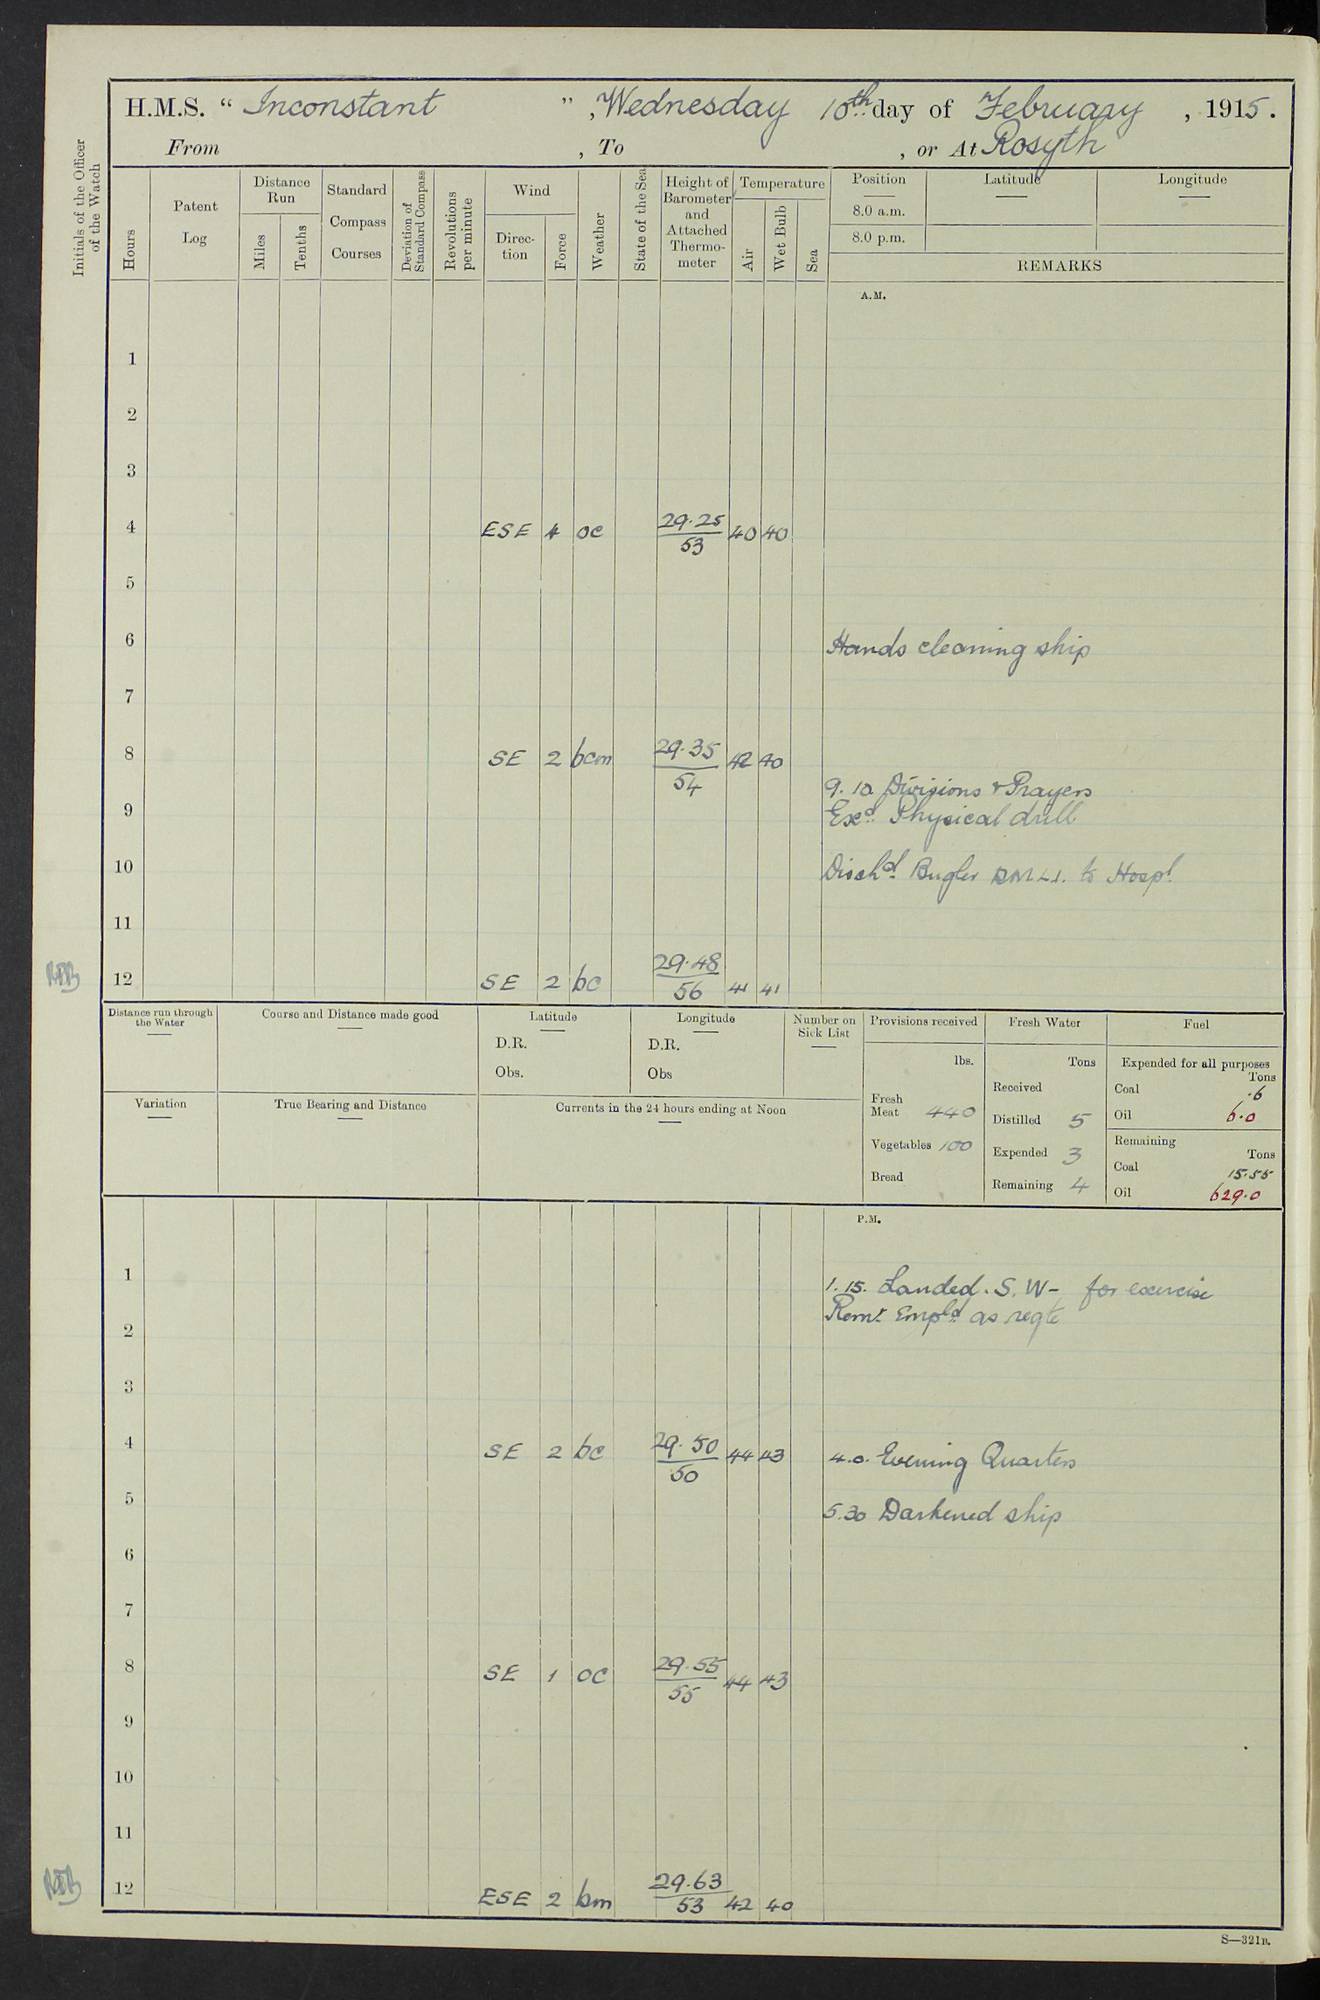 H.M.S. " Inconstant ", Wednesday 10th day of February, 1915.
From , To , or At Rosyth
Initials of the Officer of the Watch
Hours
Patent Log
Distance Run
Miles
Tenths
Standard Compass Courses
Deviation of Standard Compass
Revolutions per minute
Wind
Direction
Force
Weather
State of the Sea
Height of Barometer and Attached Thermometer
Temperature
Air
Wet Bulb
Sea
Position
8.0 a.m.
8.0 p.m.
Latitude
Longitude
REMARKS
A.M.
1
2
3
4 ESE 4 oc 29.25 53 40 40
5
6 Hands cleaning ship
7
8 SE 2 bcm 29.35 54 42 40
9.10 Divisions & Prayers
9 Exd. Physical drill
10 Dischd. Bugler RMLI. to Hospl.
11
12 SE 2 bc 29.48 56 41 41
Distance run through the Water
Course and Distance made good
Latitude
D.R.
Obs.
Longitude
D.R.
Obs
Number on Sick List
Variation
True Bearing and Distance
Currents in the 24 hours ending at Noon
Provisions received
lbs.
Fresh Meat 440
Vegetables 100
Bread
Fresh Water
Tons
Received
Distilled 5
Expended 3
Remaining 4
Fuel
Expended for all purposes
Tons
Coal .6
Oil 6.0
Remaining
Tons
Coal 15.55
Oil 629.0
P.M.
1 1.15. Landed. S. W- for exercise
Remr. Empld. as reqte
2
3
4 SE 2 bc 29.50 50 44 43 4.0. Evening Quarters
5 5.30 Darkened ship
6
7
8 SE 1 oc 29.55 55 44 43
9
10
11
12 ESE 2 bm 29.63 53 42 40
S—321B.